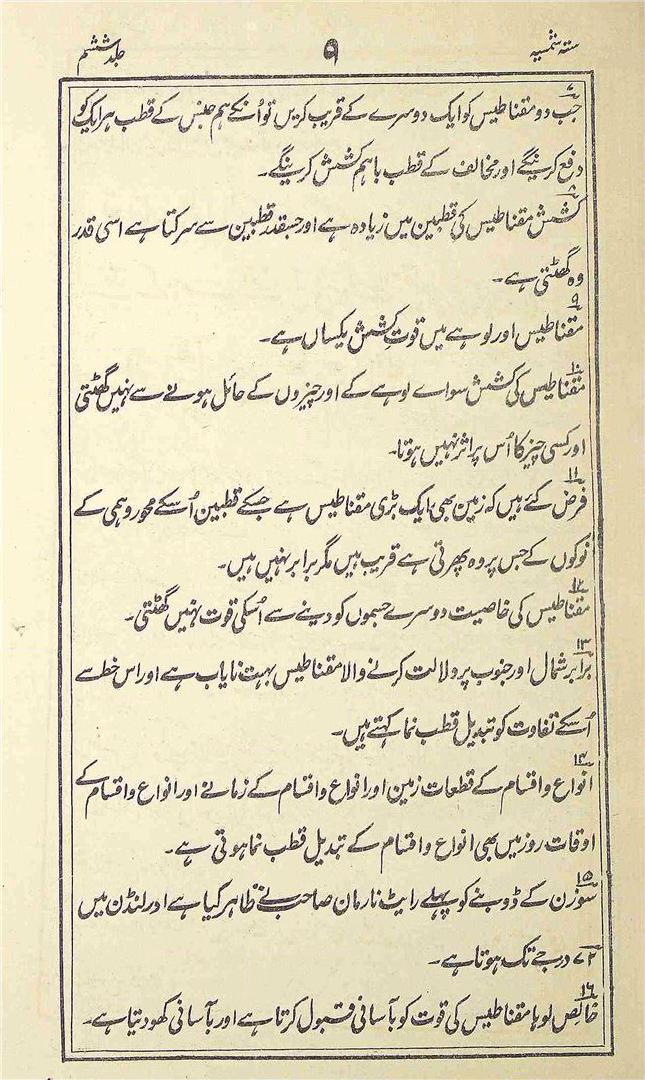 ستہ شمسیہ ۵ جلد ششم
۷ جب دو مقناطیس کو ایک دوسرے کے قریب کریں تو اُنکے ہم جنس کے قطب ہر ایک کو
دفع کرینگے اور مخالف کے قطب باہم کشش کرینگے۔
۸ کشش مقناطیس کی قطبین میں زیادہ ہے اور جسقدر قطبین سے سرکتا ہے اسی قدر
وہ گھٹتی ہے۔
۹ مقناطیس اور لوہے میں قوت کشش یکساں ہے۔
۱۰ مقناطیس کی کشش سواے لوہے کے اور چیزوں کے حائل ہونے سے نہیں گھٹتی
اور کسی چیز کا اُس پر اثر نہیں ہوتا۔
۱۱ فرض کئے ہیں کہ زمین بھی ایک بڑی مقناطیس ہے جسکے قطبین اُسکے محور وہمی کے
نوکوں کے جس پر وہ پھرتی ہے قریب ہیں مگر برابر نہیں ہیں۔
۱۲ مقناطیس کی خاصیت دوسرے جسموں کو دینے سے اُسکی قوت نہیں گھٹتی۔
۱۳ برابر شمال اور جنوب پر دلالت کرنے والا مقناطیس بہت نایاب ہے اور اس خط سے
اُسکے تفاوت کو تبدیل قطب نما کہتے ہیں۔
۱۴ انواع و اقسام کے قطعات زمین اور انواع و اقسام کے زمانے اور انواع و اقسام کے
اوقات روز میں بھی انواع و اقسام کے تبدیل قطب نما ہوتی ہے۔
۱۵ سوزن کے ڈوبنے کو پہلے رابٹ نارمان صاحب نے ظاہر کیا ہے اور لنڈن میں
۷۲ درجے تک ہوتا ہے۔
۱۶ خالص لوہا مقناطیس کی قوت کو بآسانی قبول کرتا ہے اور بآسانی کھو دیتا ہے۔